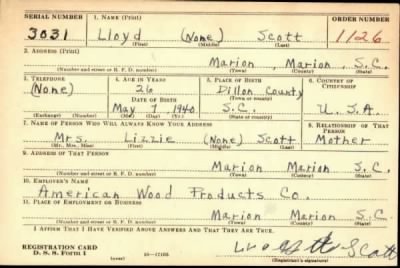 SERIAL NUMBER 1. NAME (Print) ORDER NUMBER
3031 Lloyd (None) Scott 1126
(First) (Middle) (Last)
2. ADDRESS (Print)
Marion, Marion, S.C.
(Number and street or R. F. D. number) (Town) (County) (State)
3. TELEPHONE 4. AGE IN YEARS 5. PLACE OF BIRTH 6. COUNTRY OF CITIZENSHIP
(None) 26 Dillon County
DATE OF BIRTH (Town or county)
May 7 1940 S.C. U.S.A.
(Exchange) (Number) (Mo.) (Day) (Yr.) (State or country)
7. NAME OF PERSON WHO WILL ALWAYS KNOW YOUR ADDRESS 8. RELATIONSHIP OF THAT PERSON
Mrs. Lizzie (None) Scott Mother
(Mr., Mrs., Miss) (First) (Middle) (Last)
9. ADDRESS OF THAT PERSON
Marion Marion S.C.
(Number and street or R. F. D. number) (Town) (County) (State)
10. EMPLOYER'S NAME
American Wood Products Co.
11. PLACE OF EMPLOYMENT OR BUSINESS
Marion Marion S.C.
(Number and street or R. F. D. number) (Town) (County) (State)
I AFFIRM THAT I HAVE VERIFIED ABOVE ANSWERS AND THAT THEY ARE TRUE.
REGISTRATION CARD
D. S. S. Form 1 (over) Scott
(Registrant's signature)